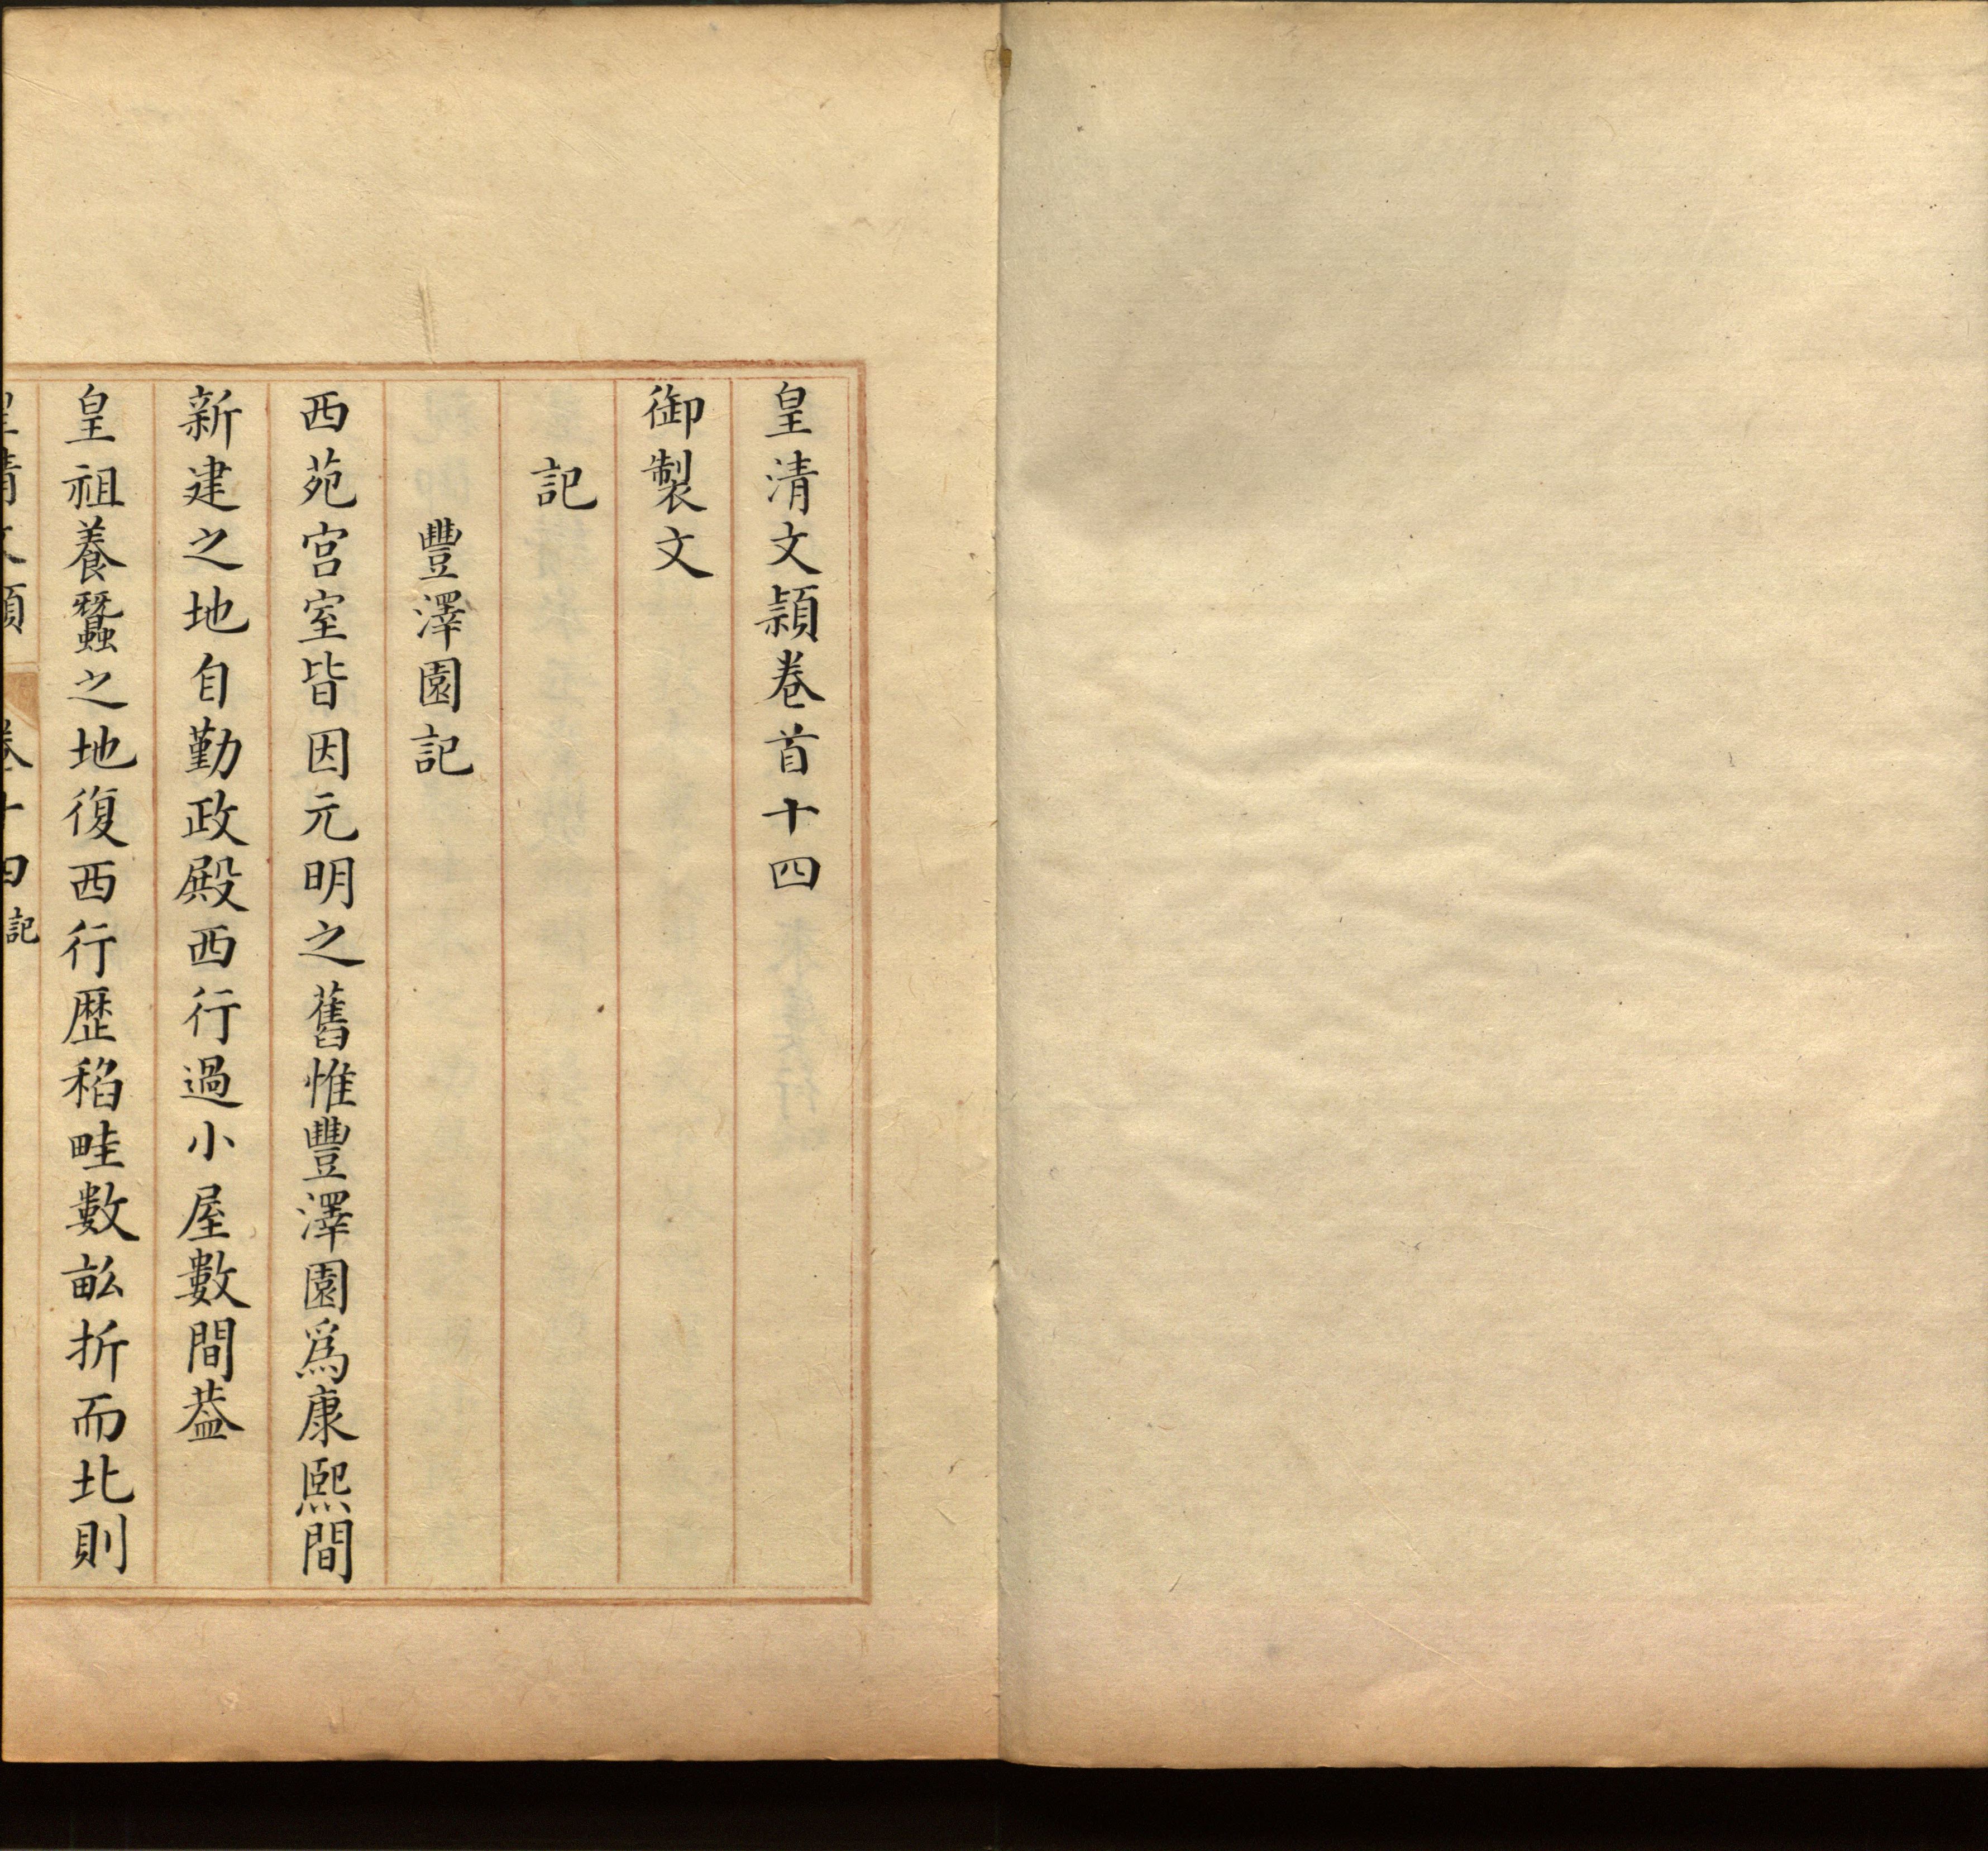 皇清文穎卷首十四
御製文
記
豐澤園記
西苑宫室皆因元明之舊惟豐澤園爲康熙間
新建之地自勤政殿西行過小屋數間葢
皇祖養蠶之地復西行歴稻畦數畝折而北則
皇清文穎 卷十四 記